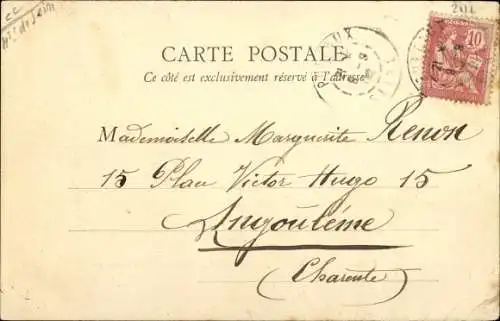 CC
Hts de Sein
201
10
CARTE POSTALE
Ce côté est exclusivement réservé à l'adresse
Mademoiselle Marguerite Renon
15 Plau Victor Hugo 15
Angoulême
(Charente)